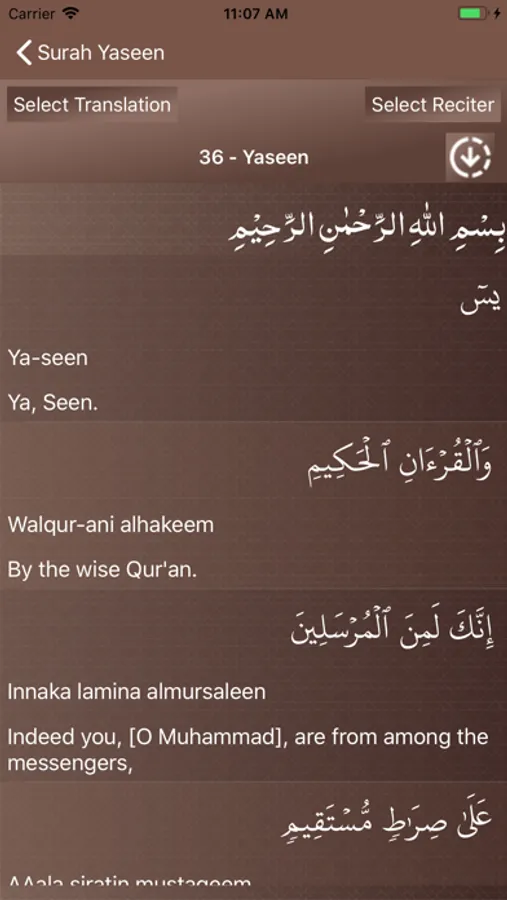 Carrier 11:07 AM
Surah Yaseen
Select Translation Select Reciter
36 - Yaseen
بِسْمِ اللهِ الرَّحْمٰنِ الرَّحِيْمِ
يسٓ
Ya-seen
Ya, Seen.
وَٱلْقُرْءَانِ ٱلْحَكِيمِ
Walqur-ani alhakeem
By the wise Qur'an.
إِنَّكَ لَمِنَ ٱلْمُرْسَلِينَ
Innaka lamina almursaleen
Indeed you, [O Muhammad], are from among the
messengers,
عَلَىٰ صِرَٰطٍ مُّسْتَقِيمٍ
AAala siratin mustaqeem